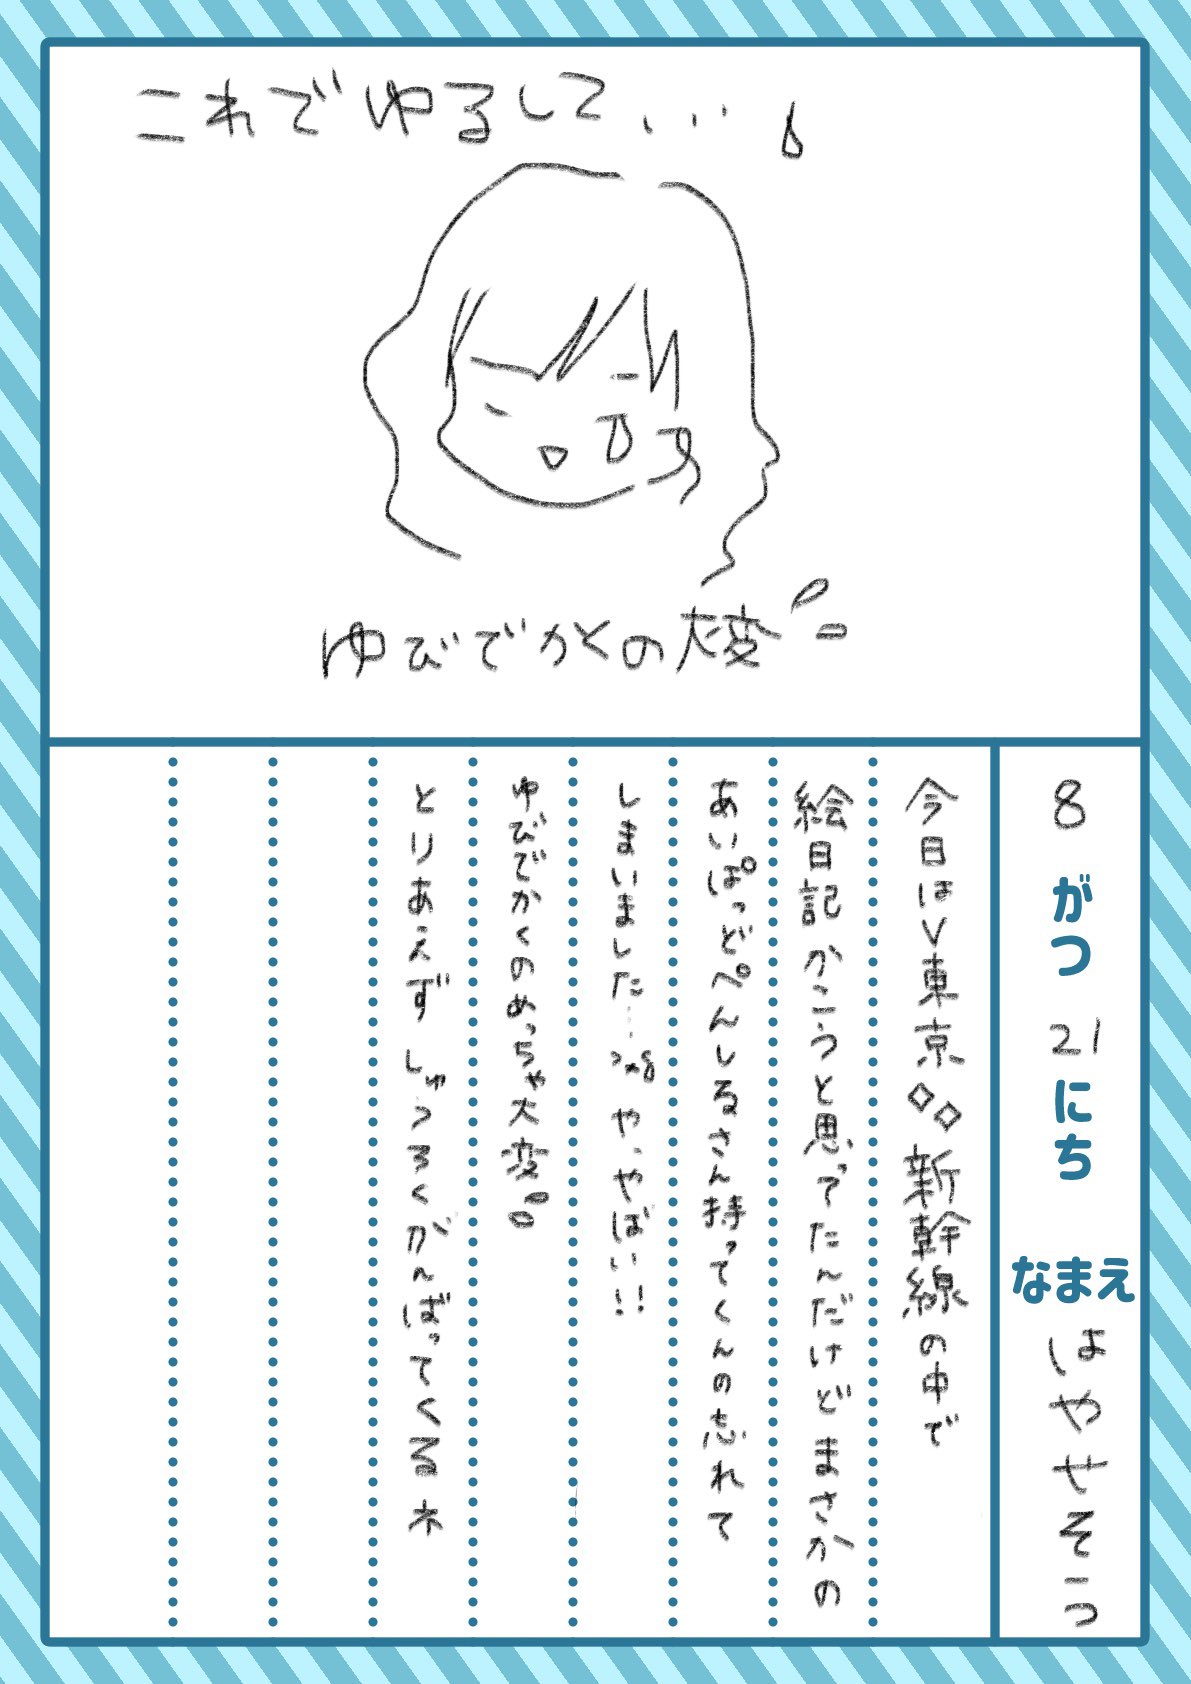 これでゆるして...
ゆびでかくの大変
8がつ21にち なまえ はやせそう
今日は東京◇◇新幹線の中で
絵日記かこうと思ってたんだけどまさかの
あいぱっどぺんしるさん持ってくんの忘れて
しまいました... や、やばい!!
ゆびでかくのめっちゃ大変
とりあえずしゅうろくがんばってくるネ